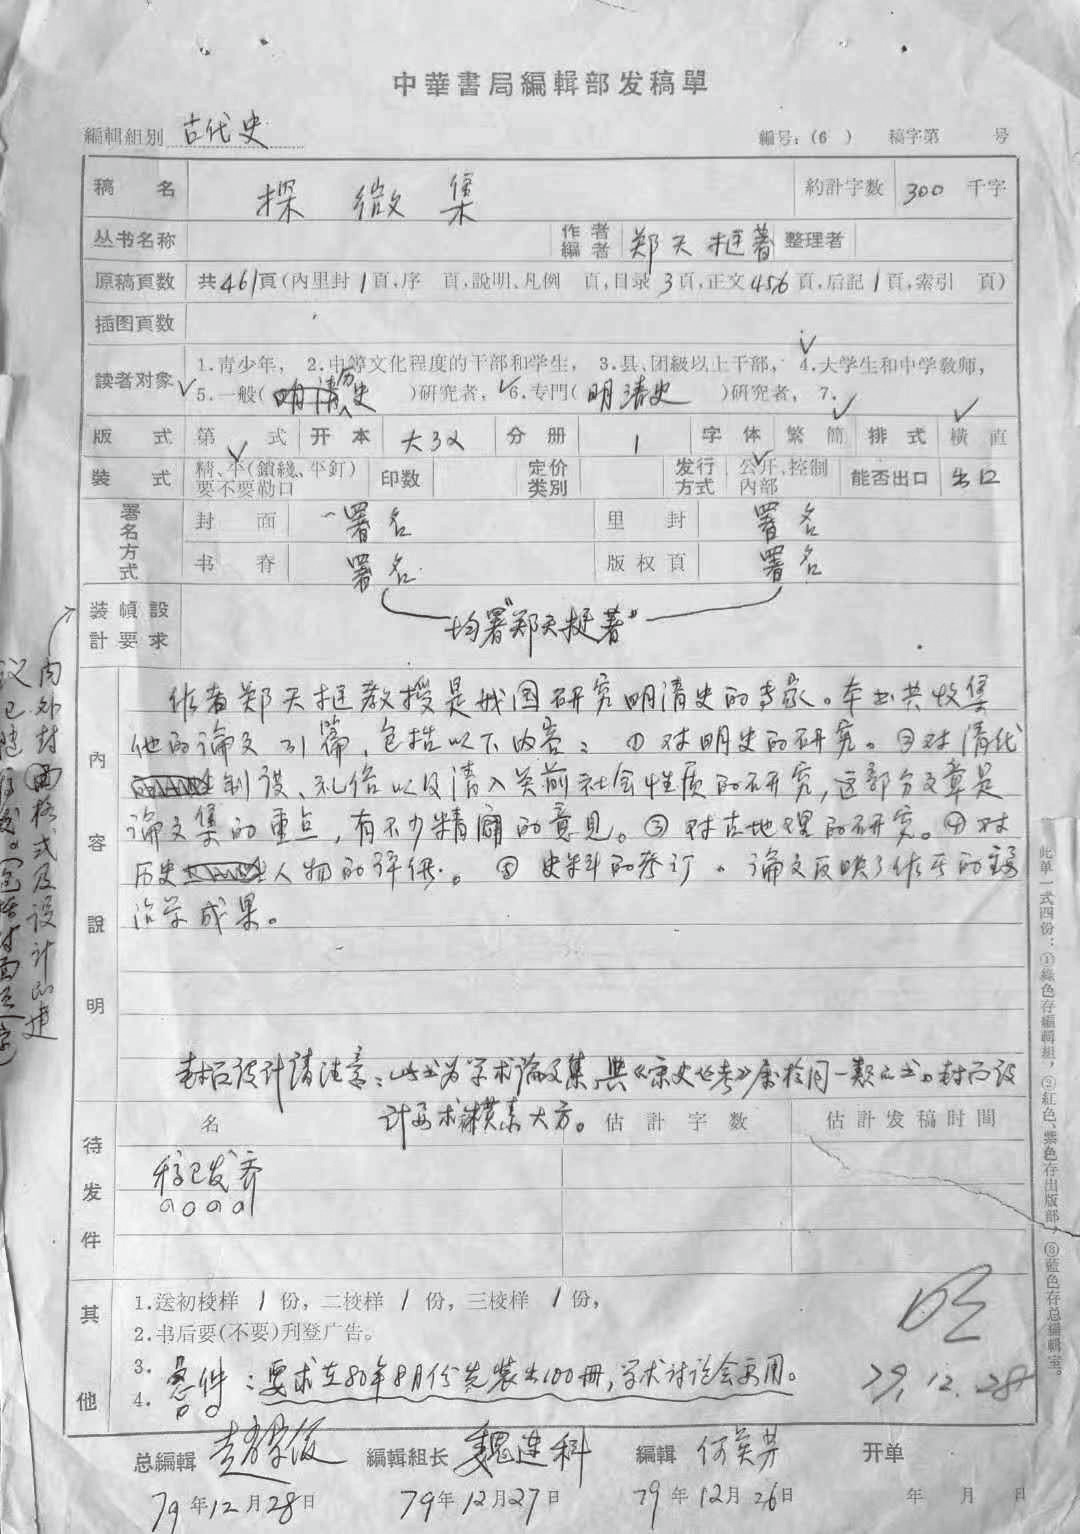 中華書局編輯部发稿單
編輯組別 古代史 編号：(6) 稿字第 号
稿名 探微集 約計字数 300 千字
丛书名称 作者編者 郑天挺著 整理者
原稿頁数 共461頁(內里封1頁,序 頁,說明、凡例 頁,目录3頁,正文456頁,后記1頁,索引 頁)
插图頁数
讀者对象 1.青少年，2.中等文化程度的干部和学生，3.县、团級以上干部，4.大学生和中学教师，
5.一般(历史)研究者，6.专門(明清史)研究者，7.
版式 第 式 开本 大32 分册 1 字体 繁 簡 排式 橫 直
装式 精、平(鎖綫、平釘) 要不要勒口 印数 定价类別 发行方式 公开、控制 內部 能否出口 出口
署名方式 封面 署名 里封 署名
书脊 署名 版权頁 署名
装幀設計要求 均署"郑天挺著"
內容說明
作者郑天挺教授是我国研究明清史的专家。本书共收集
他的论文 篇，包括以下内容：①对明史的研究。②对清代
制度、礼俗以及清入关前社会性质的研究，这部分文章是
论文集的重点，有不少精闢的意见。③对古地理的研究。④对
历史人物的评价。⑤史料的考订。论文反映了作者的
治学成果。
封面设计请注意：此书为学术论文集，与《宋史 考》属于同一类的书。封面设
计要求朴素大方。
待发件 名 估計字数 估計发稿时間
稿已发齐
其他
1.送初校样 1 份，二校样 1 份，三校样 1 份，
2.书后要(不要)刋登广告。
3.
4. 急件：要求在80年8月份先装出100册，学术讨论会要用。
79.12.28
总編輯 赵守俨 編輯組长 魏连科 編輯 何英芳 开单
79年12月28日 79年12月27日 79年12月26日 年 月 日
内外封面格式及设计的建
此单一式四份：①綠色存編輯組，②紅色、紫色存出版部，③藍色存总編輯室。